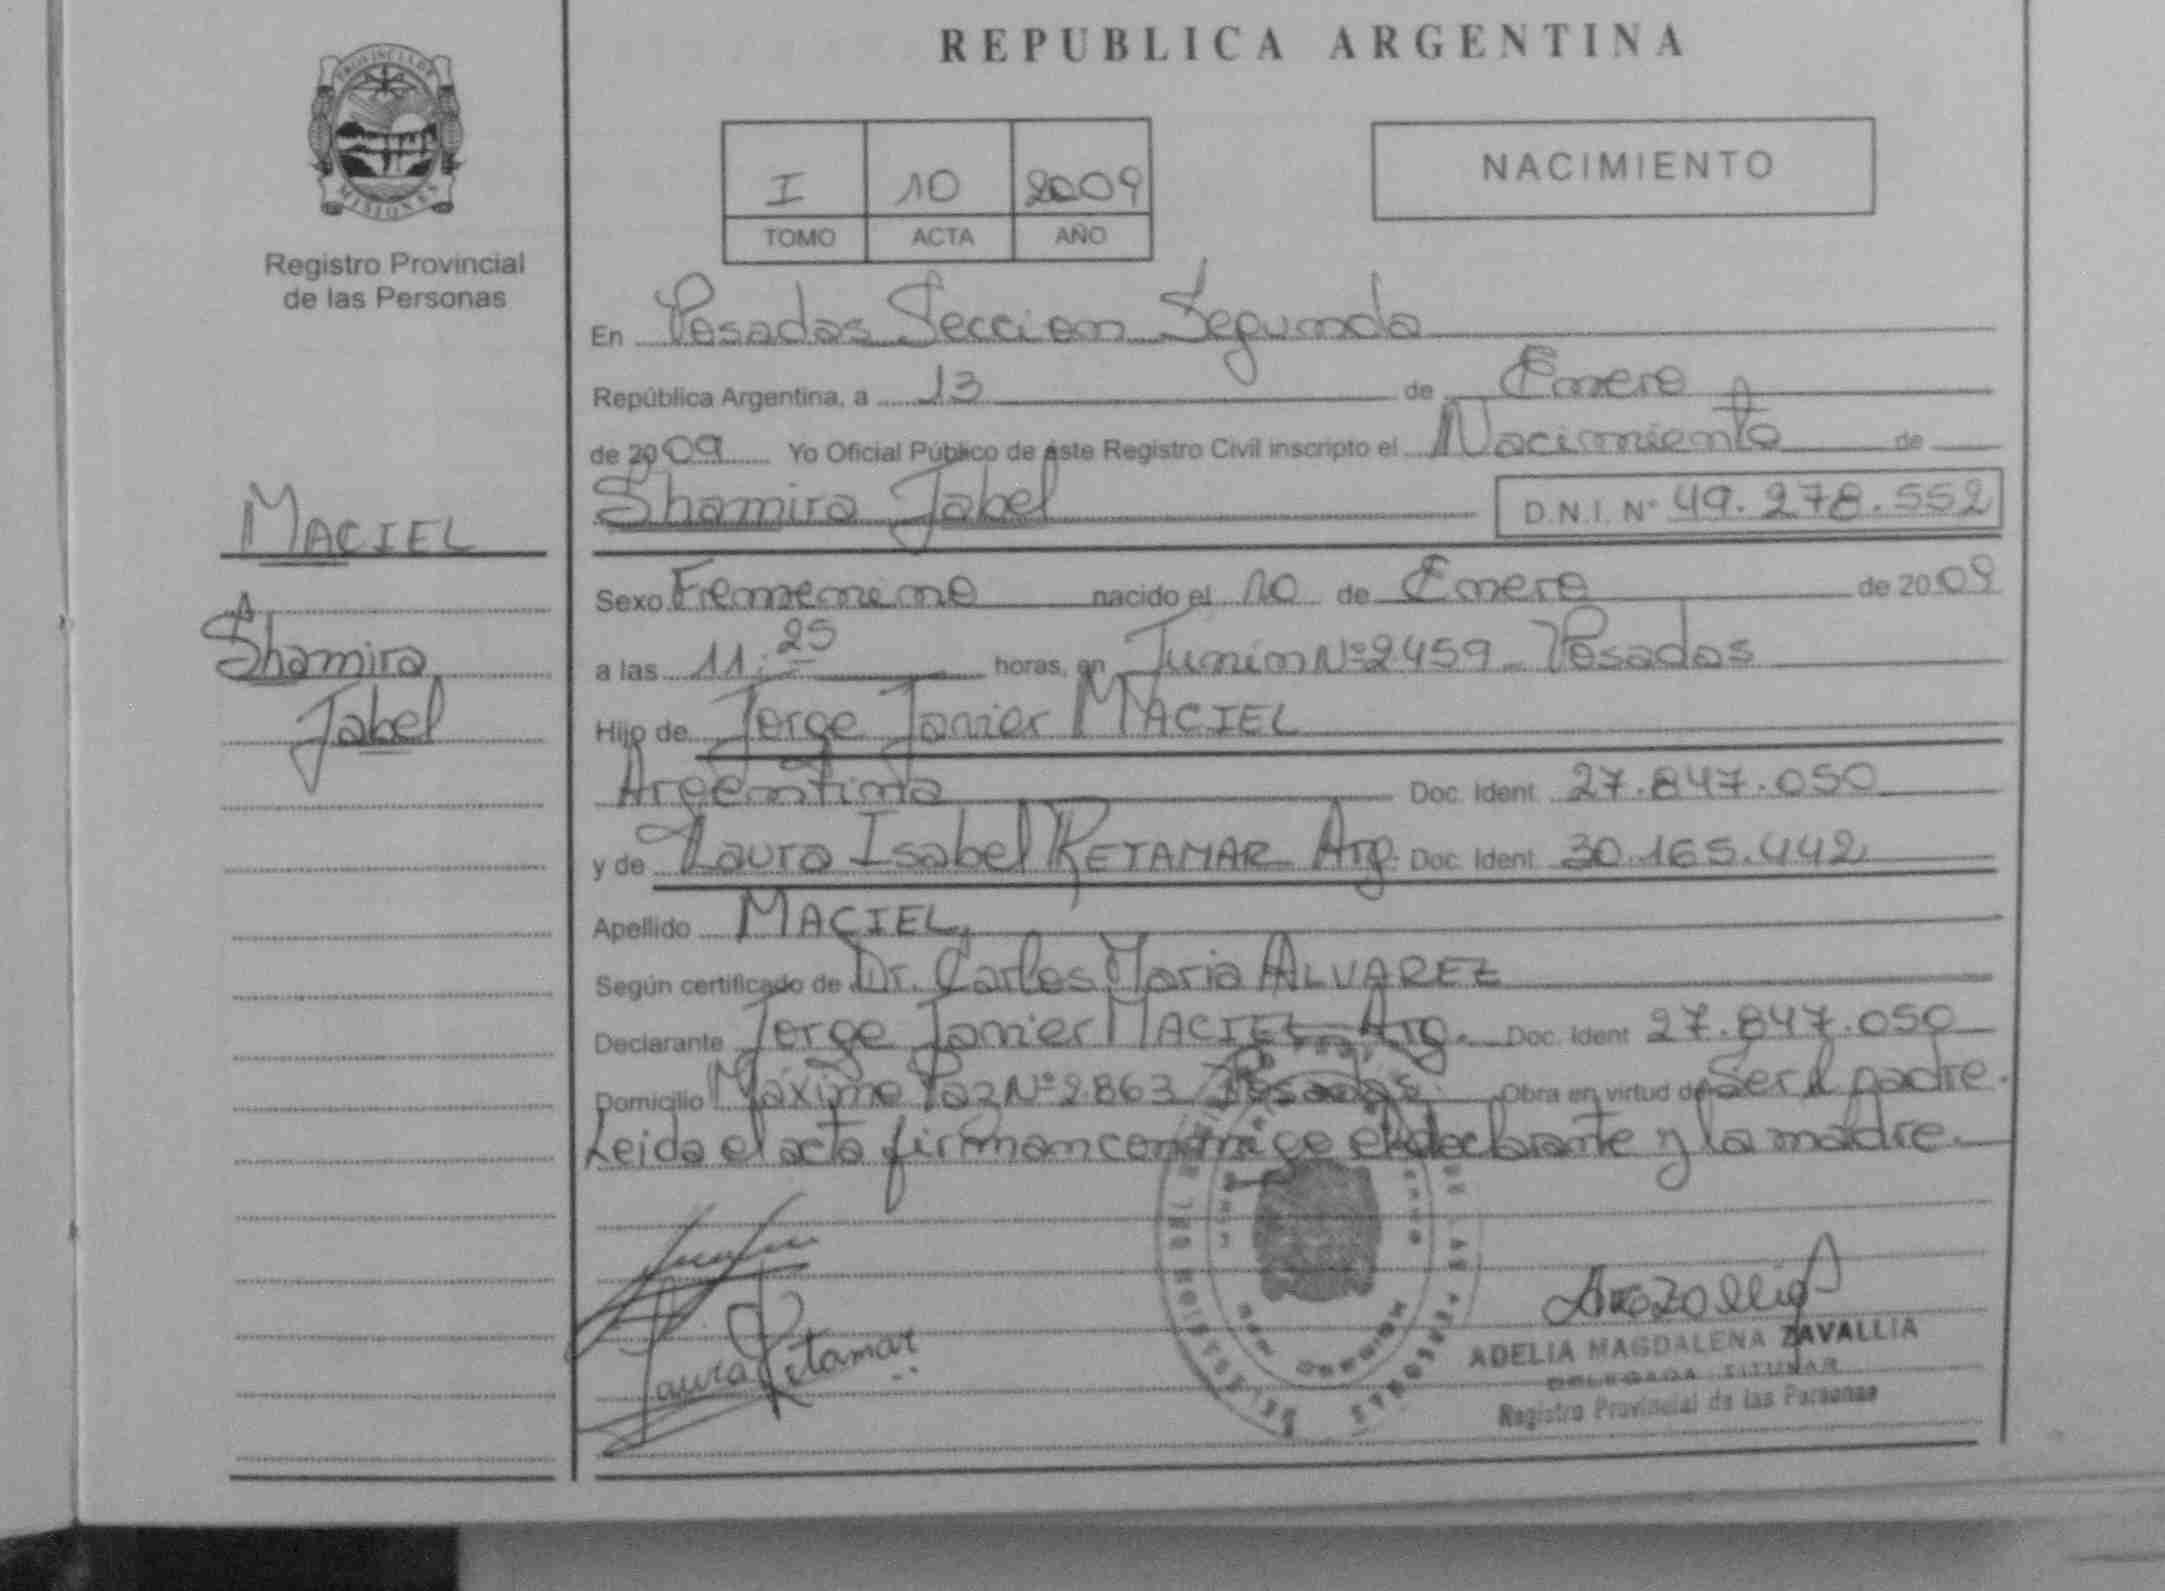 REPUBLICA ARGENTINA
PROVINCIA DE
MISIONES
Registro Provincial
de las Personas
I 10 2009
TOMO ACTA AÑO
NACIMIENTO
En Posadas Seccion Segunda
República Argentina, a 13 de Enero
de 2009 Yo Oficial Público de éste Registro Civil inscripto el Nacimiento de
Shamira Jabel D.N.I. Nº 49.278.552
MACIEL
Shamira
Jabel
Sexo Femenino nacido el 10 de Enero de 2009
a las 11:25 horas, en Junin Nº 2459 - Posadas
Hijo de Jorge Javier MACIEL
Argentina Doc. Ident. 27.847.050
y de Laura Isabel RETAMAR Arg. Doc. Ident. 30.165.442
Apellido MACIEL
Según certificado de Dr. Carlos Maria ALVAREZ
Declarante Jorge Javier MACIEL Arg. Doc. Ident 27.847.050
Domicilio Máximo Paz Nº 2863 Posadas Obra en virtud de Ser el padre.
Leida el acta firman conmigo el declarante y la madre.
Laura Retamar
ADELIA MAGDALENA ZAVALLIA
DELEGADA TITULAR
Registro Provincial de las Personas